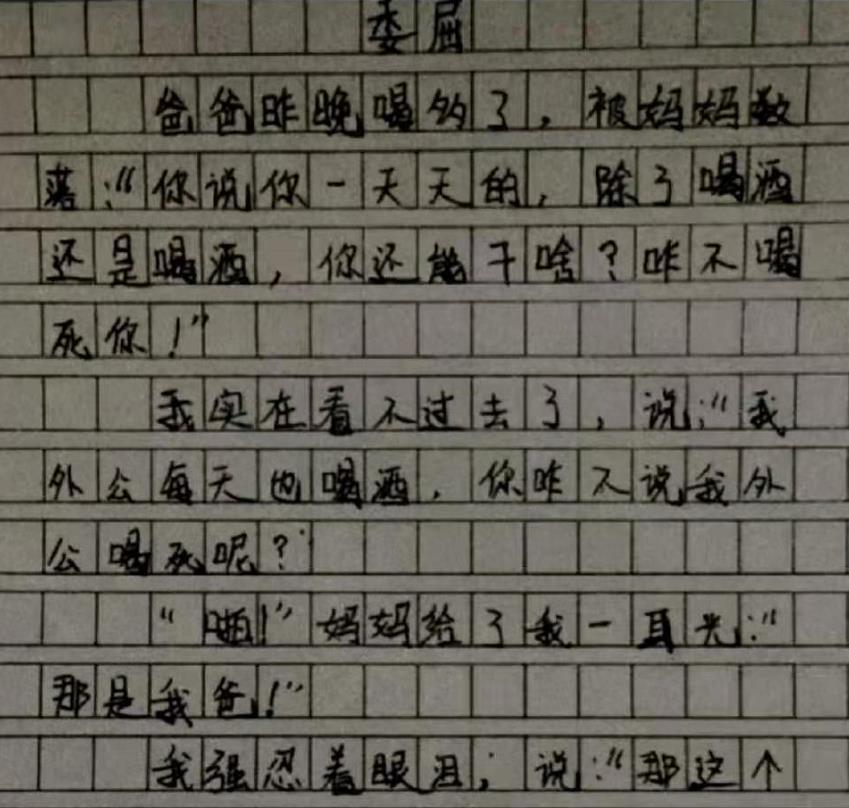 委屈
爸爸昨晚喝多了，被妈妈数
落："你说你一天天的，除了喝酒
还是喝酒，你还能干啥？咋不喝
死你！"
我实在看不过去了，说："我
外公每天也喝酒，你咋不说我外
公喝死呢？
"啪！"妈妈给了我一耳光："
那是我爸！"
我强忍着眼泪；说："那这个